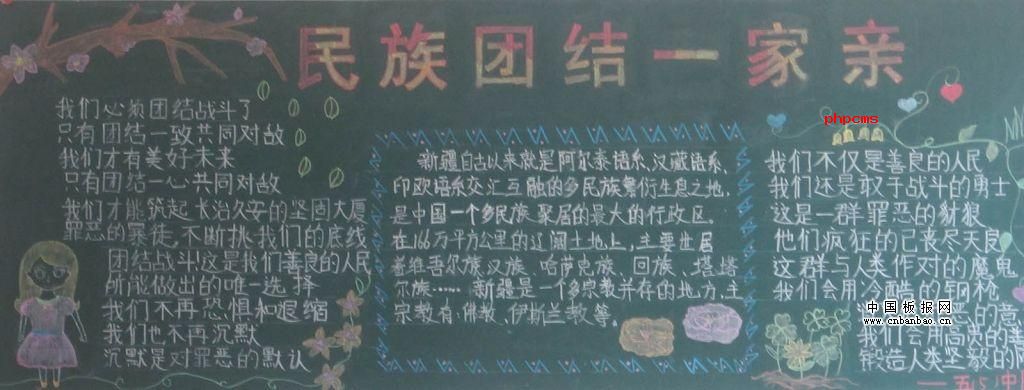 民族团结一家亲
我们必须团结战斗了
只有团结一致共同对敌
我们才有美好未来
只有团结一心共同对敌
我们才能筑起长治久安的坚固大厦
罪恶的暴徒,不断挑我们的底线
团结战斗!这是我们善良的人民
所能做出的唯一选择
我们不再恐惧和退缩
我们也不再沉默
沉默是对罪恶的默认
新疆自古以来就是阿尔泰语系,汉藏语系,
印欧语系交汇互融的多民族繁衍生息之地,
是中国一个多民族聚居的最大的行政区.
在166万平方公里的辽阔土地上,主要世居
着维吾尔族汉族、哈萨克族、回族、塔塔
尔族……新疆是一个多宗教并存的地方.主
宗教有:佛教、伊斯兰教等。
phpcms
我们不仅是善良的人民
我们还是敢于战斗的勇士
这是一群罪恶的豺狼
他们疯狂的已丧尽天良
这群与人类作对的魔鬼
我们会用冷酷的钢枪
中国板报网
www.cnbanbao.cn
恶的意
我们会用高贵的善
锻造人类坚毅的